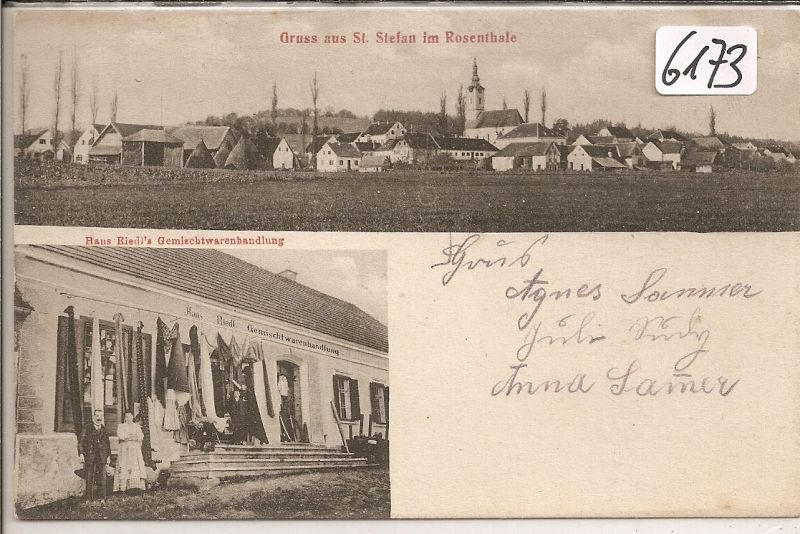 Gruss aus St. Stefan im Rosenthale
6173
Hans Riedl's Gemischtwarenhandlung
Hans Riedl Gemischtwarenhandlung
Grus
Agnes Sammer
Juli
Anna Sam̅er